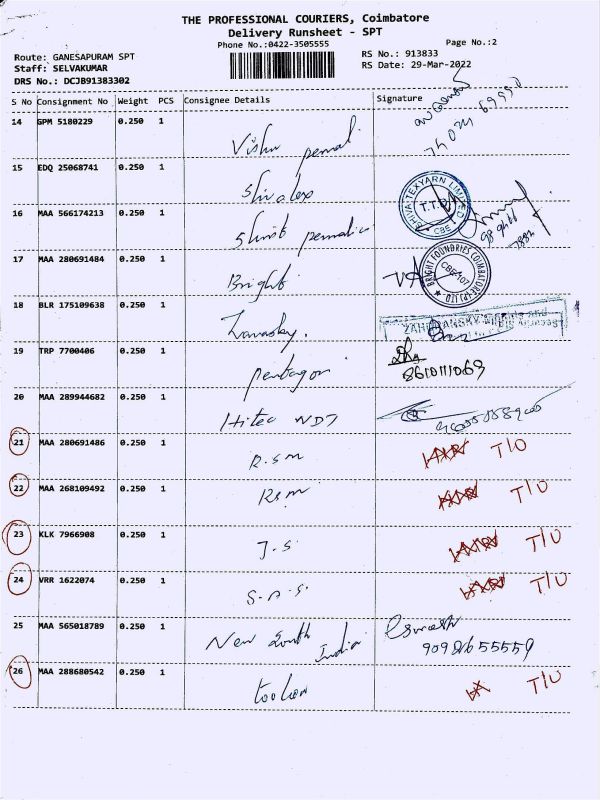 THE PROFESSIONAL COURIERS, Coimbatore
Delivery Runsheet - SPT
Phone No.:0422-3505555
Page No.:2
Route: GANESAPURAM SPT
RS No.: 913833
Staff: SELVAKUMAR
RS Date: 29-Mar-2022
DRS No.: DCJB91383302
S No Consignment No Weight PCS Consignee Details Signature
14 GPM 5180229 0.250 1
15 EDQ 25068741 0.250 1
SHIVA TEXYARN LIMITED T.T.D. CBE
16 MAA 566174213 0.250 1
17 MAA 280691484 0.250 1 Bright
BRIGHT FOUNDRIES COIMBATORE (P) LTD
18 BLR 175109638 0.250 1
19 TRP 7700406 0.250 1 pentagon
8610111069
20 MAA 289944682 0.250 1 Hitec NDT
21 MAA 280691486 0.250 1 R.S.M T/O
22 MAA 268109492 0.250 1 RSM T/O
23 KLK 7966908 0.250 1 J.S. T/O
24 VRR 1622074 0.250 1 S.A.S. T/O
25 MAA 565018789 0.250 1 New South India
26 MAA 288680542 0.250 1 T/O